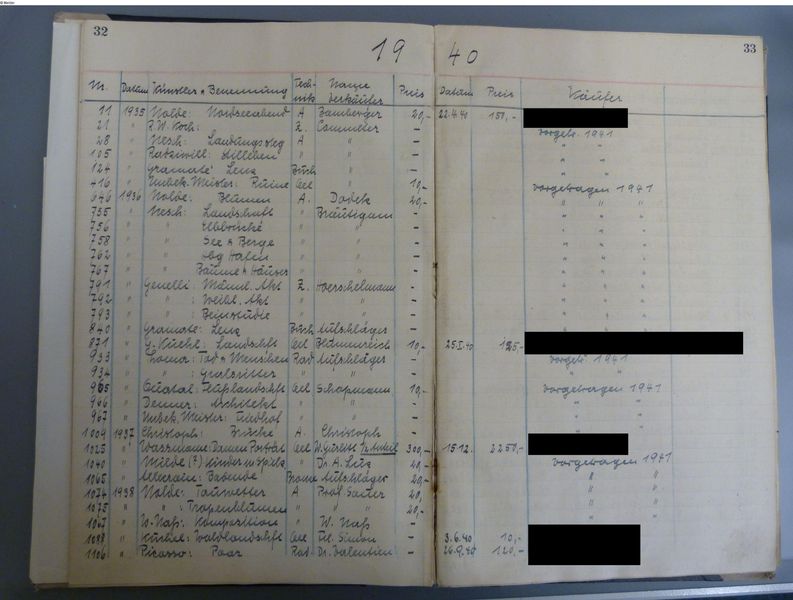 32
33
19 40
Nr. Datum Künstler & Benennung Technik Name Verkäufer Preis Datum Preis Käufer
11 1935 Nolde: Nordseeabend A Bamberger 20,- 22.4.40 150,-
21 " P.W. Koch: Z. Commeter - vorgetr. 1941
28 " Nesch: Landungssteg A " - " "
105 " Radziwill: Stilleben " - " "
124 " Gramaté: Lenz Buch - " "
416 " Unbek. Meister: Ruine Oel 10,- vorgetragen 1941
646 1936 Nolde: Blumen A. Dodek 20,- " " "
755 " Nesch: Landschaft " Bräutigam - " "
756 " " Elbbrücke " " - " "
758 " " See & Berge " " - " "
762 " " Hafen " " - " "
767 " " Bäume & Häuser " " - " "
791 " Genelli: Männl. Akt Z. Hoerschelmann - " "
792 " " : Weibl. Akt " " - " "
793 " " : Beinstudie " " - " "
840 " Gramaté: Lenz Buch Aufhläger - " "
871 " G. Kuehl: Landschft Oel Blumenreich 10,- 25.I.40 125-
933 " Thoma: Tod & Menschen Rad Aufhläger - vorgetr. 1941
934 " " : Gralsritter " " - " "
965 " Flußlandschft Oel Schopmann 10,- vorgetragen 1941
966 " Denner: Architekt " " - " "
967 " Unbek. Meister: " " - " "
1009 1937 Christoph: Brücke A. Christoph - " "
1025 " Wasmann: Damen Porträt Oel W. Gurlitt ½ Anteil 300,- 15.12. 2250,-
1040 " Milde (?) Kinder m Spielz " Dr. A. Lenz 40,- vorgetragen 1941
1065 " Badende Bronze Aufhläger 20,- " "
1074 1938 Nolde: Tauwetter A Prof Sauer 20,- " "
1075 " " : Tropenblumen " " 20,- " "
1087 " W. Naß: Komposition " W. Naß - " "
1088 " Kuchel: Waldlandschft Oel Simon - 3.6.40 10,-
1106 " Picasso: Paar Rad. Dr. Valentien - 26.9.40 120,-